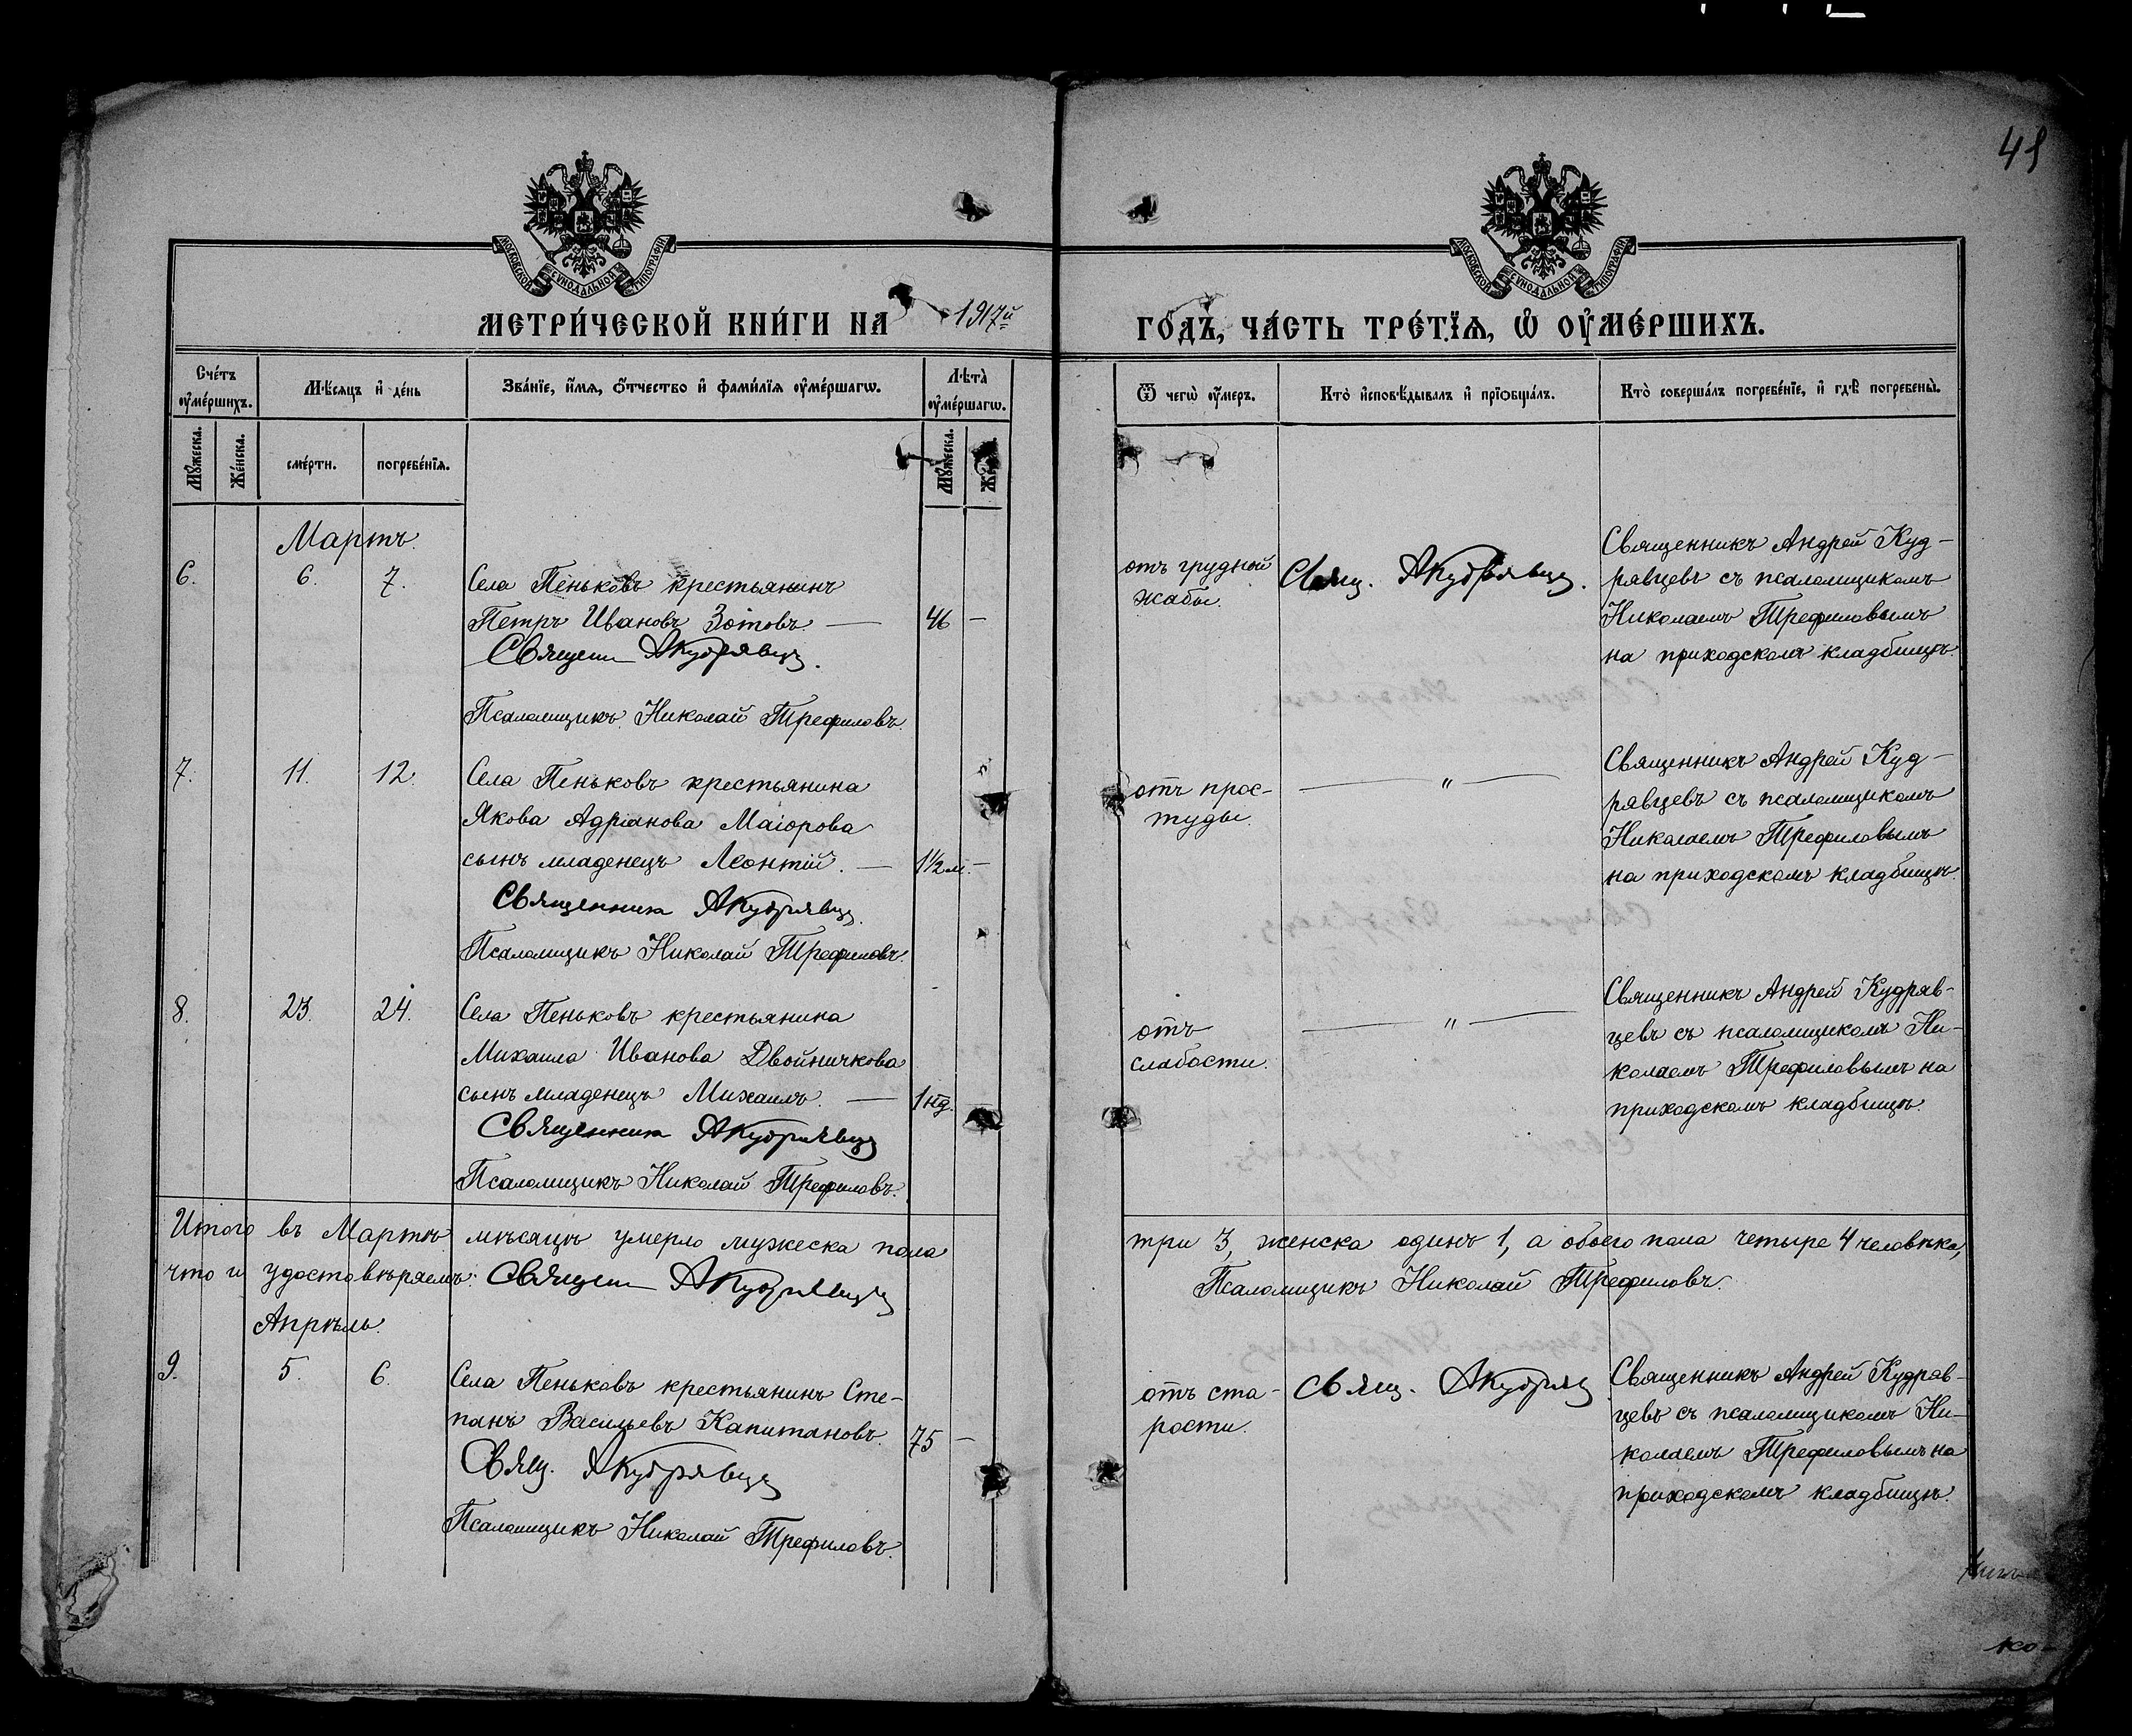 48
МОСКОВСКОЙ СѴНОДАЛЬНОЙ ТИПОГРАФІИ
МОСКОВСКОЙ СѴНОДАЛЬНОЙ ТИПОГРАФІИ
МЕТРИ́ЧЕСКОЙ КНИ́ГИ НА 1917й ГОДЪ, ЧА́СТЬ ТРЕ́ТЇѦ, Ѽ ОУ҆МЕ́РШИХЪ.
Сче́тъ оу҆ме́ршихъ.
Мѣ́сѧцъ и҆ де́нь
Зва́нїе, и҆́мѧ, ѻ҆́тчество и҆ фами́лїѧ оу҆ме́ршагѡ.
Лѣ́та оу҆ме́ршагѡ.
Ѿ чегѡ̀ оу҆́меръ.
Кто̀ и҆сповѣ́дывалъ и҆ прїѻбща́лъ.
Кто̀ соверша́лъ погребе́нїе, и҆ гдѣ̀ погребены̀.
Мꙋ́жеска.
Же́нска.
сме́рти.
погребе́нїѧ.
Мꙋ́жеска.
Мартъ.
6. 6. 7. Села Пеньковъ крестьянинъ
Петръ Ивановъ Зотовъ. — 46 —
Священ Акудрявцев.
Псаломщикъ Николай Трефиловъ.
отъ грудной
жабы.
Свящ. Акудрявцев.
Священникъ Андрей Куд-
рявцевъ съ псаломщикомъ
Николаемъ Трефиловымъ
на приходскомъ кладбищѣ.
7. 11. 12. Села Пеньковъ крестьянина
Якова Адріанова Маіорова
сынъ младенецъ Леонтій. — 1½ м. —
Священник Акудрявцев.
Псаломщикъ Николай Трефиловъ.
отъ прос-
туды.
— „ —
Священникъ Андрей Куд-
рявцевъ съ псаломщикомъ
Николаемъ Трефиловымъ
на приходскомъ кладбищѣ.
8. 23. 24. Села Пеньковъ крестьянина
Михаила Иванова Двойничкова
сынъ младенецъ Михаилъ. — 1 нд.
Священник Акудрявцев
Псаломщикъ Николай Трефиловъ.
отъ
слабости.
— „ —
Священникъ Андрей Кудряв-
цевъ съ псаломщикомъ Ни-
колаемъ Трефиловымъ на
приходскомъ кладбищѣ.
Итого въ Мартѣ мѣсяцѣ умерло мужеска пола три 3, женска одинъ 1, а обоего пола четыре 4 человѣка,
что и удостовѣряемъ: Священ Акудрявцев Псаломщикъ Николай Трефиловъ.
Апрѣль.
9. 5. 6. Села Пеньковъ крестьянинъ Сте-
панъ Васильевъ Капитановъ. 75 —
Свящ. Акудрявцев
Псаломщикъ Николай Трефиловъ.
отъ ста-
рости.
Свящ. Акудрявц
Священникъ Андрей Кудряв-
цевъ съ псаломщикомъ Ни-
колаемъ Трефиловымъ на
приходскомъ кладбищѣ.
ко-